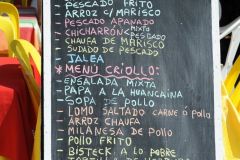 - PESCADO FRITO
- ARROZ C/ MARISCO
- PESCADO APANADO
- CHICHARRÓN MIXTO PESCADO
- CHAUFA DE MARISCO
- SUDADO DE PESCADO
- JALEA
* MENÚ CRIOLLO:
- ENSALADA MIXTA
- PAPA A LA HUANCAINA
- SOPA DE POLLO
- LOMO SALTADO CARNE Ó POLLO
- ARROZ CHAUFA
- MILANESA DE POLLO
- POLLO FRITO
- BISTECK A LO POBRE